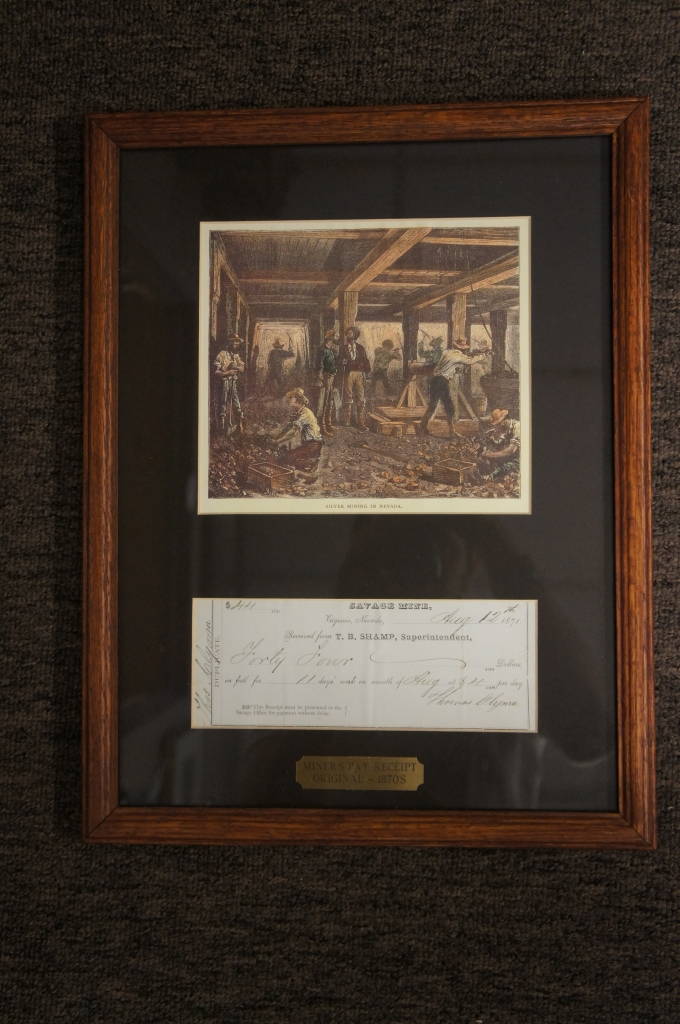 SILVER MINING IN NEVADA.
$44
SAVAGE MINE,
Virginia, Nevada, Aug 12th 1871
Received from T. B. SHAMP, Superintendent,
Forty Four Dollars,
in full for 11 days work in month of Aug at $4 per day
Thomas
This Receipt must be presented to the
Savage Office for payment without delay.
DUPLICATE.
MINER'S PAY RECEIPT
ORIGINAL ~ 1870'S